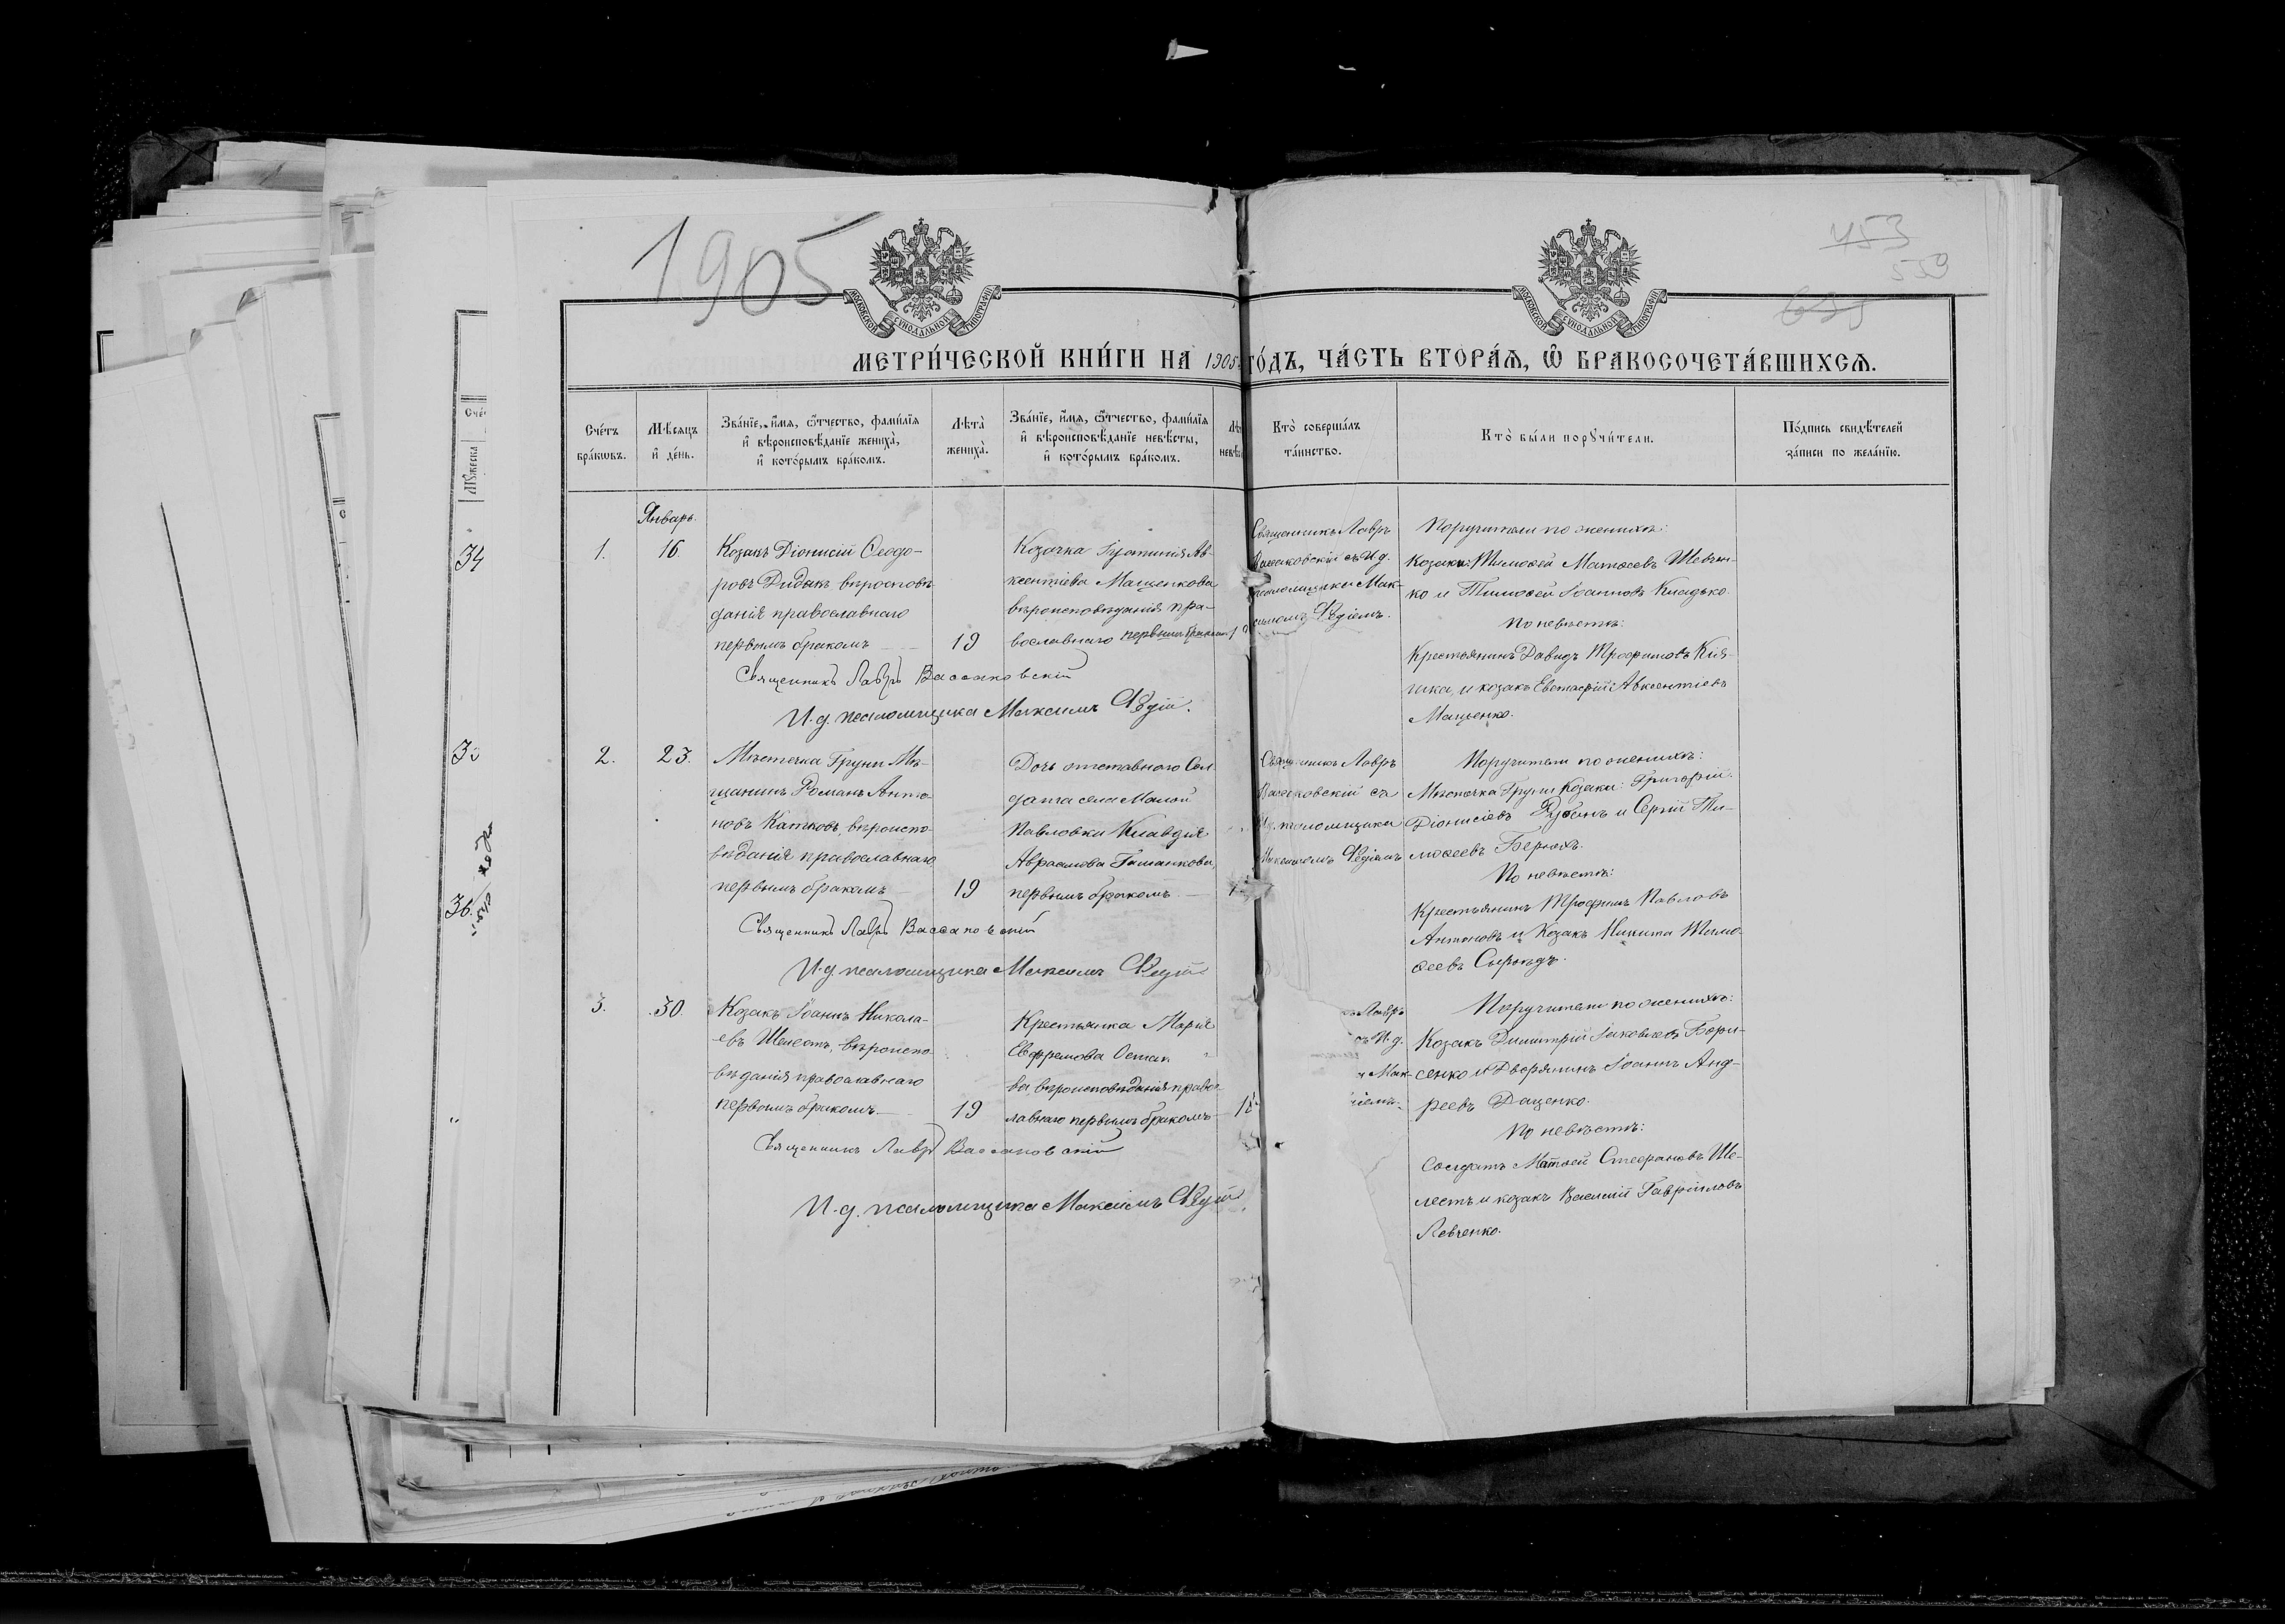 1905
453
559
МОСКОВСКОЙ СУНОДАЛЬНОЙ ТИПОГРАФІИ
МОСКОВСКОЙ СУНОДАЛЬНОЙ ТИПОГРАФІИ
МЕТРИ́ЧЕСКОЙ КНИ́ГИ НА 1905 ГО́ДЪ, ЧА́СТЬ ВТОРА́Я, Ѿ БРАКОСОЧЕТА́ВШИХСЯ.
Сче́тъ бра́кѡвъ.
Мѣ́сяцъ и҆ де́нь.
Зва́нїе, и҆́мя, ѻ҆́тчество, фами́лїя и҆ вѣроисповѣ́данїе жениха̀, и҆ кото́рымъ бра́комъ.
Лѣта̀ жениха̀.
Зва́нїе, и҆́мя, ѻ҆́тчество, фами́лїя и҆ вѣроисповѣ́данїе невѣ́сты, и҆ кото́рымъ бра́комъ.
Кто̀ соверша́лъ та́инство.
Кто̀ бы́ли порꙋчи́тели.
По́дпись свидѣ́телей за́писи по жела́нїю.
Январь.
1.
16
Козакъ Діонисій Ѳеодо-
ровъ Дидыкъ, вѣроисповѣ
данія православнаго
первымъ бракомъ
19
Козачка Іустинія Ав-
ксентіева Мащенкова
вѣроисповѣданія пра-
вославнаго первымъ бракомъ
Священникъ Лавръ
съ И. д.
псаломщика Мак-
симомъ
Поручители по женихѣ:
Козаки: Тимоѳей Матѳеевъ Шевчен-
ко и Тимоѳей Іоанновъ Кладько.
По невѣстѣ:
Крестьянинъ Давидъ Трофимовъ Кия-
шка, и козакъ Евстафій Авксентіевъ
Мащенко.
Священникъ Лавръ
И. д. псаломщика Максимъ
2.
23.
Мѣстечка Груни Мѣ-
щанинъ Романъ Анто-
новъ Катковъ, вѣроиспо-
вѣданія православнаго
первымъ бракомъ
19
Дочь отставного Сол-
дата села Малой
Павловки Клавдія
Авраамова
первымъ бракомъ
Священникъ Лавръ
съ
псаломщика
Максимомъ
Поручители по женихѣ:
Мѣстечка Груни Козаки: Григорій
Діонисіевъ Рубанъ и Сергій Ти-
моѳеевъ
По невѣстѣ:
Крестьянинъ Трофимъ Павловъ
Антоновъ и Козакъ Никита Тимо-
ѳеевъ Сыроѣдъ.
Священникъ Лавръ
И. д. псаломщика Максимъ
3.
30.
Козакъ Іоаннъ Никола-
евъ Шелестъ, вѣроиспо-
вѣданія православнаго
первымъ бракомъ
19
Крестьянка Марія
Евфремова
ва, вѣроисповѣданія правос-
лавнаго первымъ бракомъ
Лавръ
съ И. д.
Мак-
Поручители по женихѣ:
Козакъ Димитрій Іаковлевъ Бори-
сенко и Дворянинъ Іоаннъ Анд-
реевъ Даценко.
По невѣстѣ:
Солдатъ Матѳей Стефановъ Ше-
лестъ и козакъ Василій Гавріиловъ
Левченко.
Священникъ Лавръ
И. д. псаломщика Максимъ
34
36.